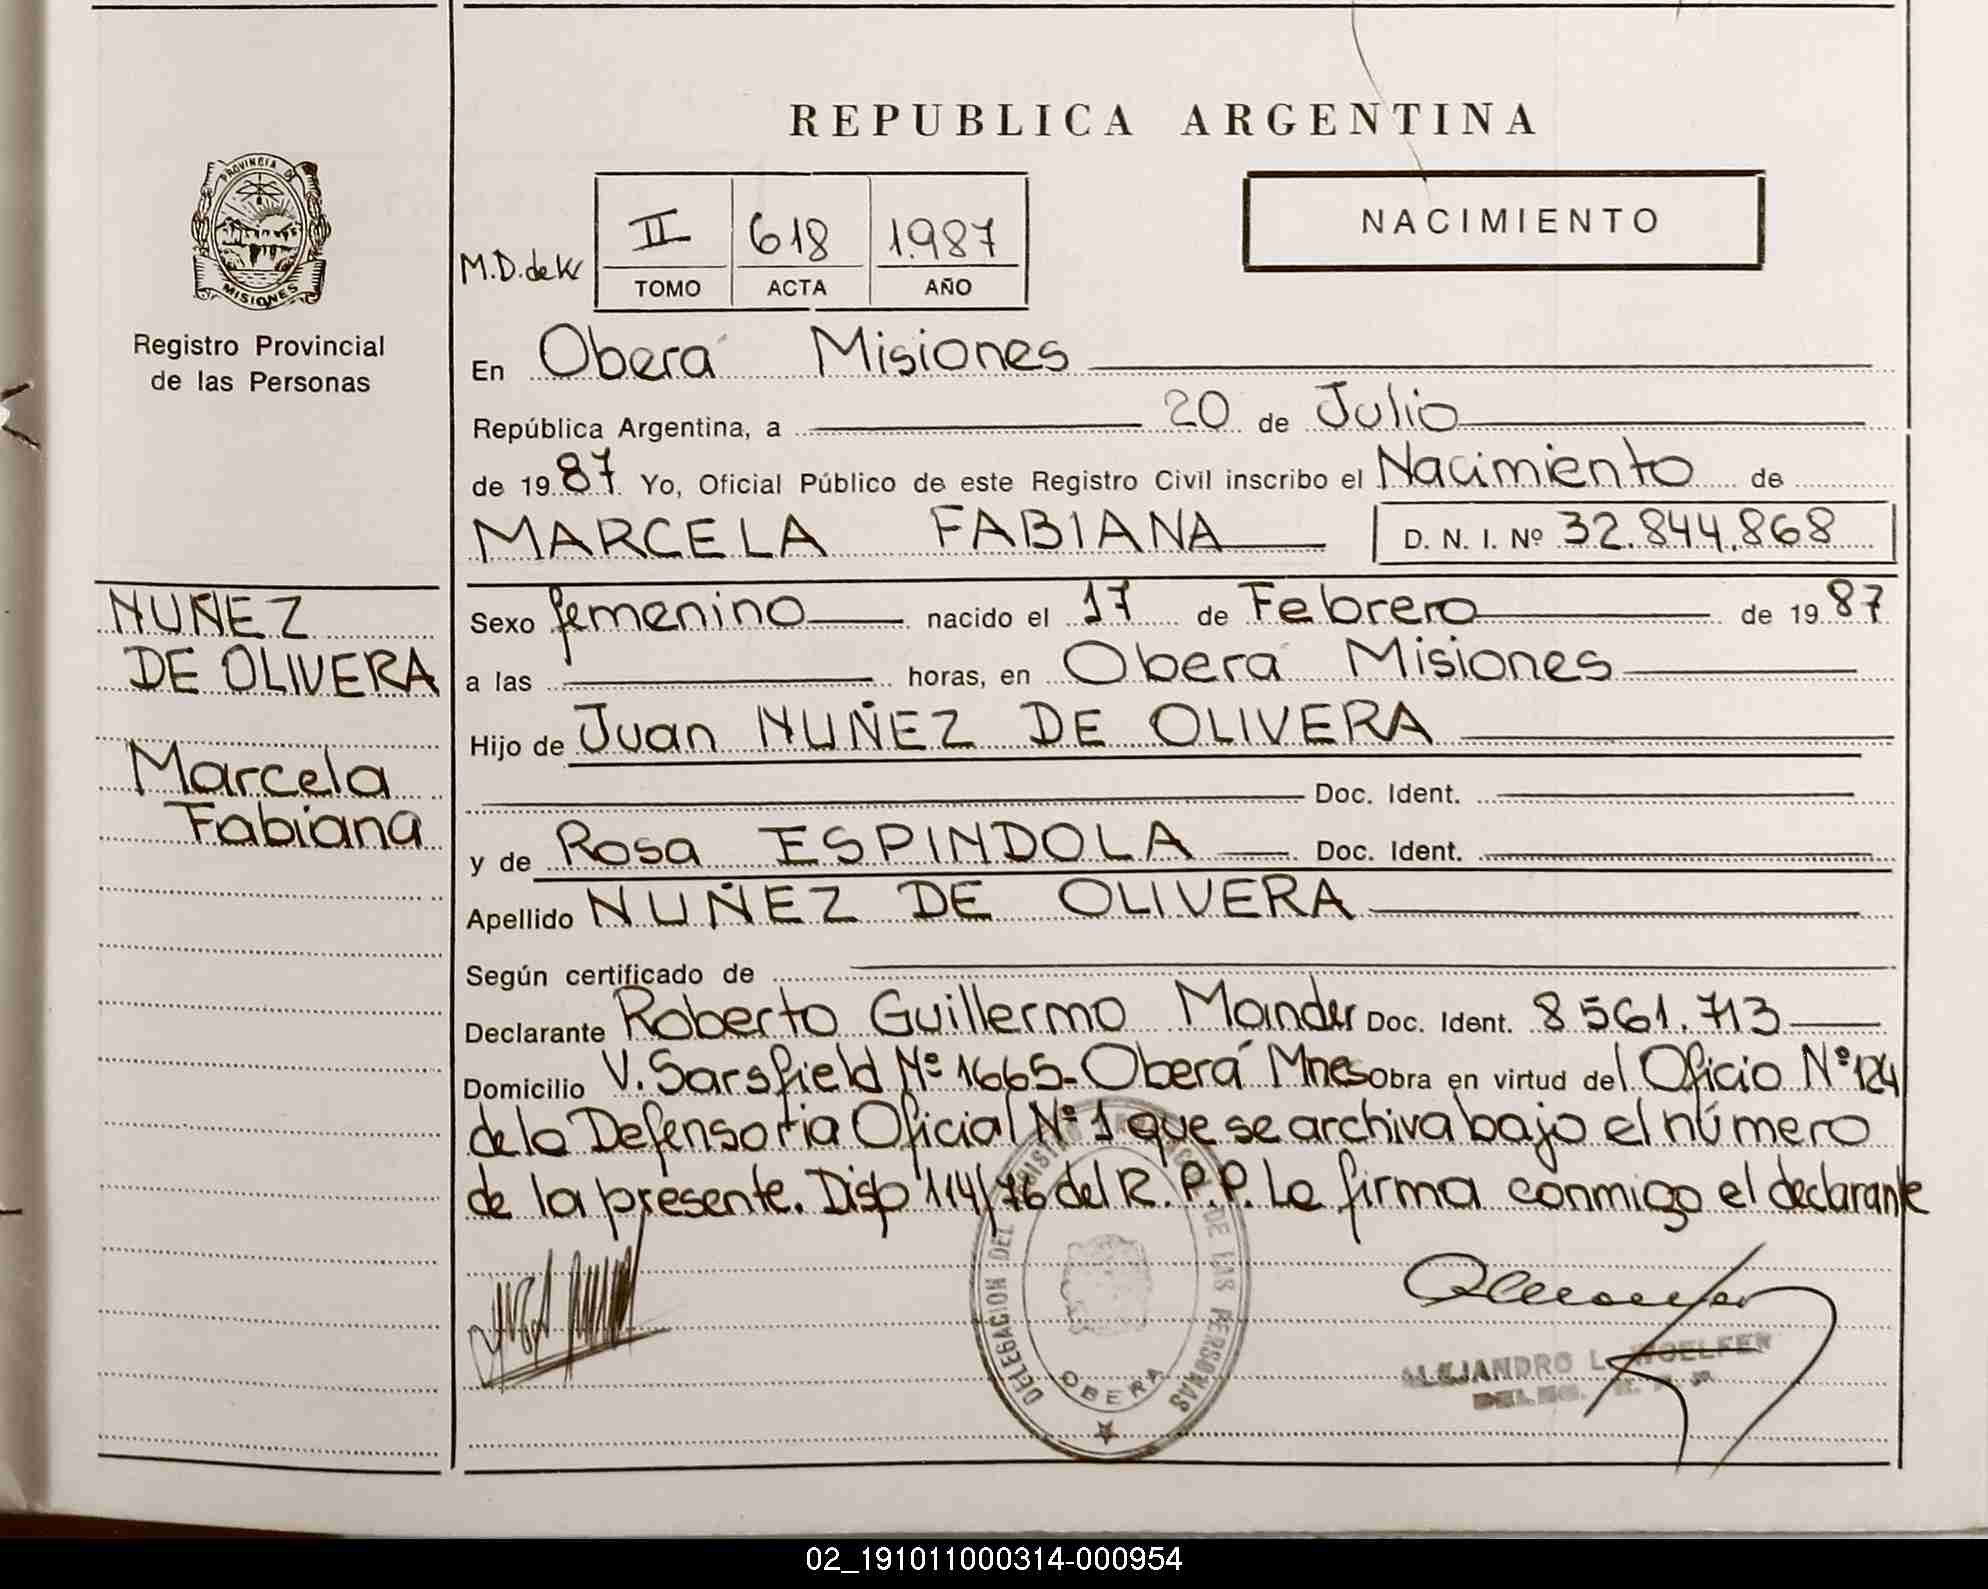 REPUBLICA ARGENTINA
PROVINCIA DE
MISIONES
Registro Provincial
de las Personas
NUÑEZ
DE OLIVERA
Marcela
Fabiana
NACIMIENTO
M.D. de K
II 618 1.987
TOMO ACTA AÑO
En Oberá Misiones
República Argentina, a 20 de Julio
de 1987 Yo, Oficial Público de este Registro Civil inscribo el Nacimiento de
MARCELA FABIANA D. N. I. Nº 32.844.868
Sexo femenino nacido el 17 de Febrero de 1987
a las horas, en Oberá Misiones
Hijo de Juan NUÑEZ DE OLIVERA
Doc. Ident.
y de Rosa ESPINDOLA Doc. Ident.
Apellido NUÑEZ DE OLIVERA
Según certificado de
Declarante Roberto Guillermo Mander Doc. Ident. 8561.713
Domicilio V. Sarsfield Nº 1665- Oberá Mnes Obra en virtud del Oficio Nº 124
de la Defensoria Oficial Nº 1 que se archiva bajo el número
de la presente. Disp 114/76 del R.P.P. La firma conmigo el declarante
DELEGACION DEL REGISTRO DE LAS PERSONAS
OBERA
ALEJANDRO L. WOELFER
02_191011000314-000954